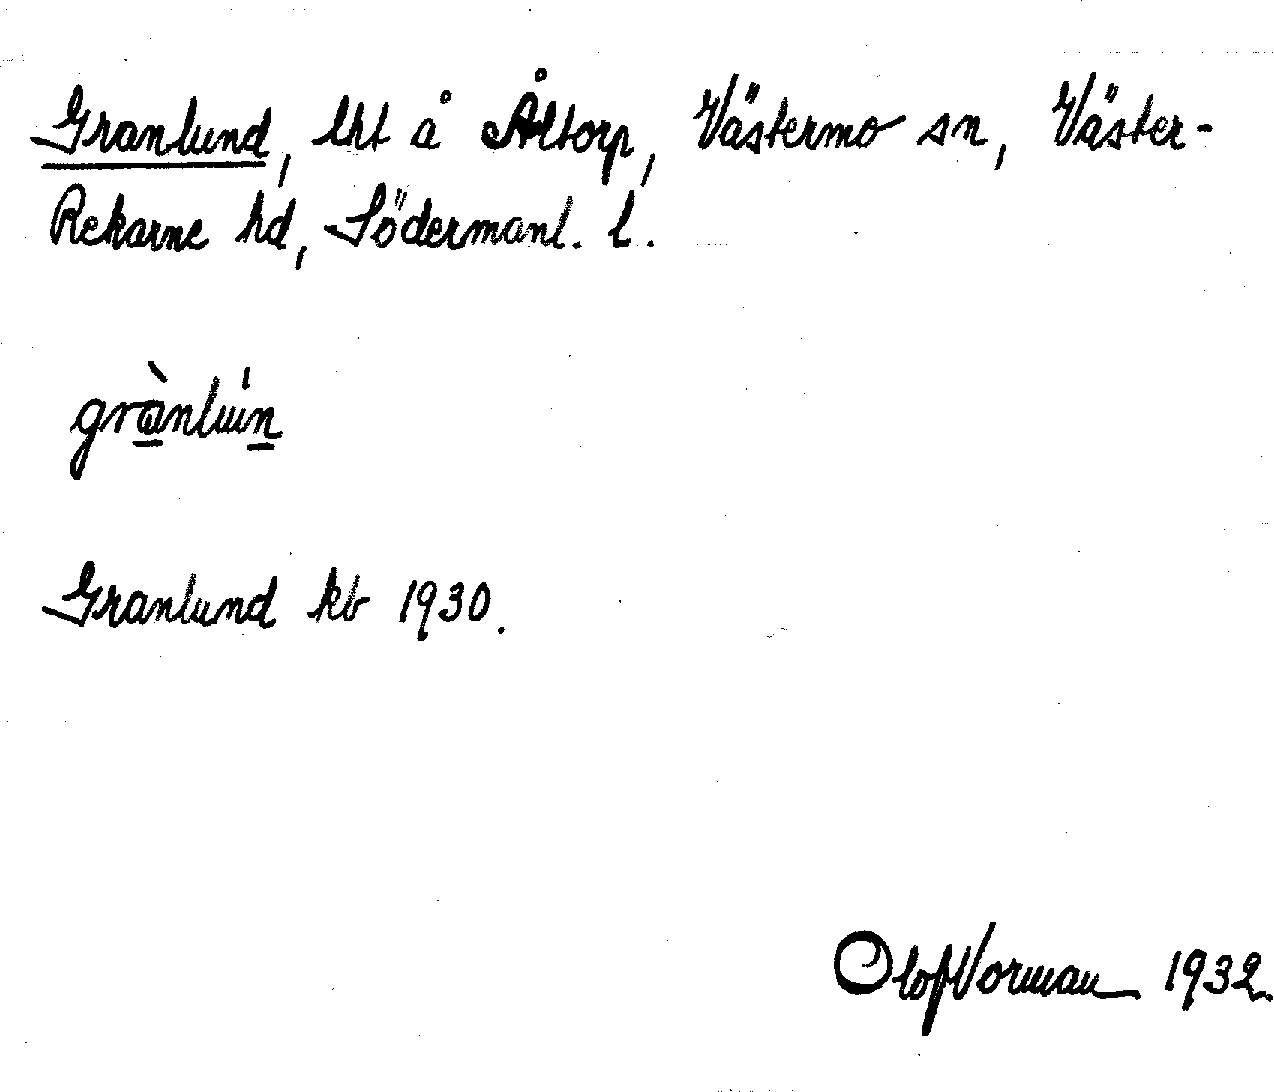 Granlund, lht å Åltorp, Västermo sn, Väster-
Rekarne hd, Södermanl. l.
grànluńn
Granlund kb 1930.
Olof Vorman 1932.